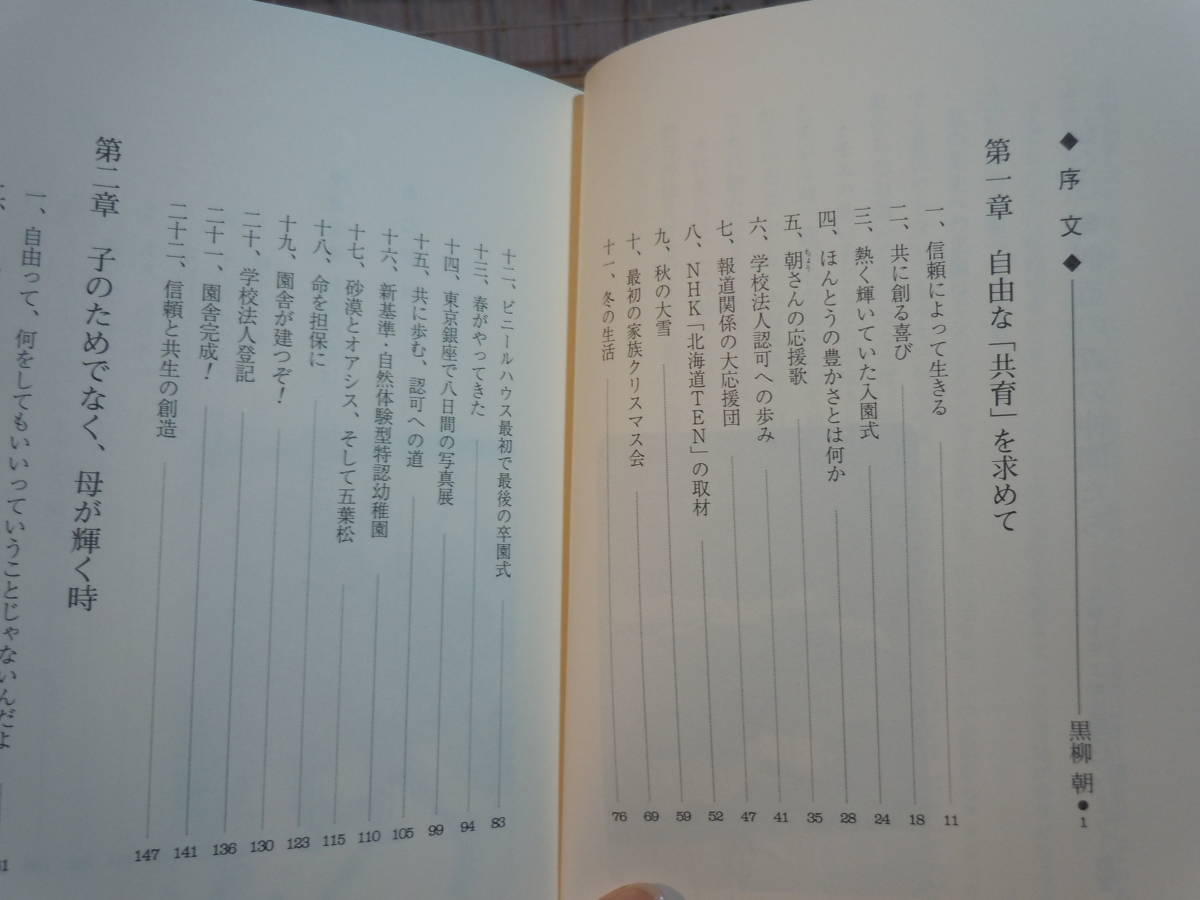 ◆序文◆ 黒柳 朝●1
第一章 自由な「共育」を求めて
一、信頼によって生きる 11
二、共に創る喜び 18
三、熱く輝いていた入園式 24
四、ほんとうの豊かさとは何か 28
五、朝さんの応援歌 35
ちょう
六、学校法人認可への歩み 41
七、報道関係の大応援団 47
八、NHK「北海道TEN」の取材 52
九、秋の大雪 59
十、最初の家族クリスマス会 69
十一、冬の生活 76
十二、ビニールハウス最初で最後の卒園式 83
十三、春がやってきた 94
十四、東京銀座で八日間の写真展 99
十五、共に歩む、認可への道 105
十六、新基準・自然体験型特認幼稚園 110
十七、砂漠とオアシス、そして五葉松 115
十八、命を担保に 123
十九、園舎が建つぞ! 130
二十、学校法人登記 136
二十一、園舎完成! 141
二十二、信頼と共生の創造 147
第二章 子のためでなく、母が輝く時
一、自由って、何をしてもいいっていうことじゃないんだよ